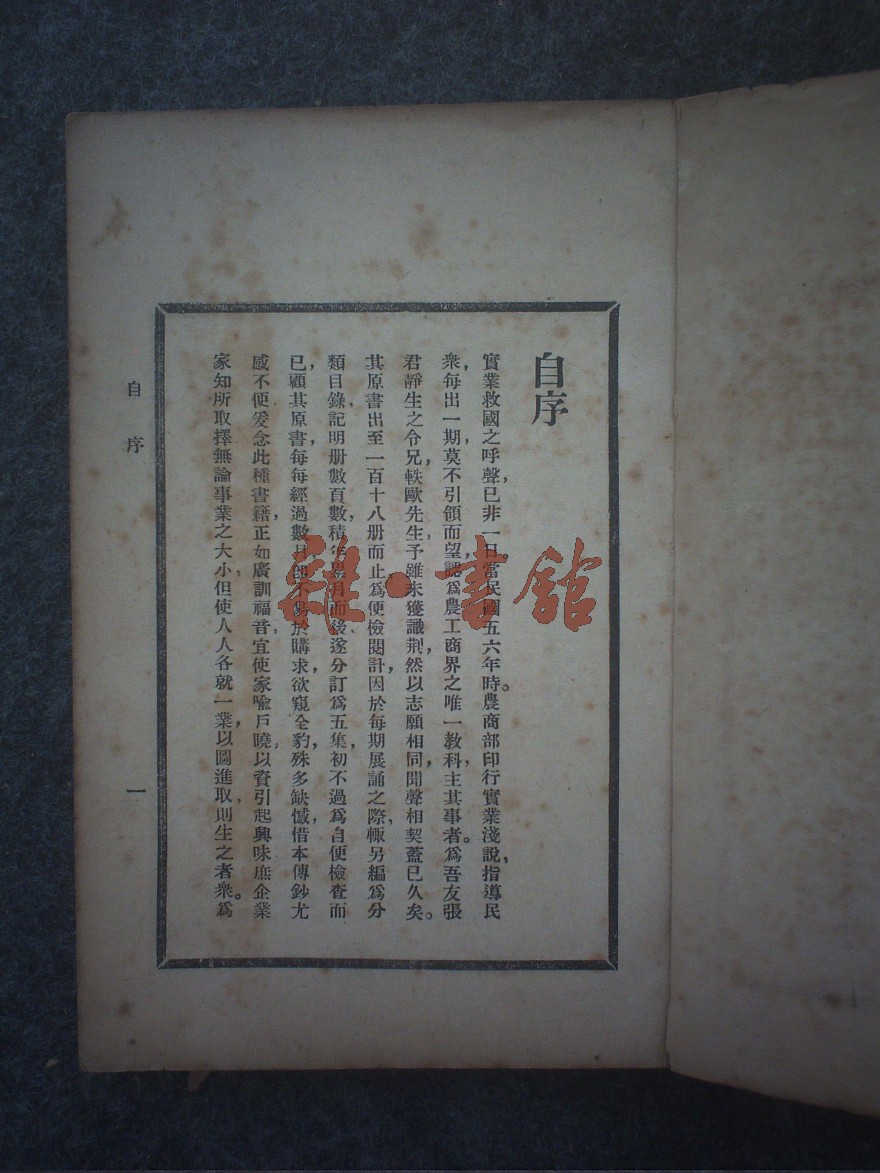 自序
實業救國之呼聲，已非一日。當民國五六年時。農商部印行實業淺說，指導民
衆，每出一期，莫不引領而望，認爲農工商界之唯一教科，主其事者。爲吾友張
君靜生之令兄，軼歐先生，予雖未獲識荆，然以志願相同，聞聲相契，蓋已久矣。
其原書出至一百十八册而止，爲便檢閱計，因於每期展誦之際，輒另編爲分
類目錄，記明册數頁數，積年累月而後，遂分訂爲五集，初不過爲自便檢查而
已，顧其原書，每每經過數月，卽不易於購求，欲窺全豹，殊多缺憾，借本傳鈔，尤
感不便，爰念此種書籍，正如廣訓福音，宜使家喻戶曉，以資引起興味，庶企業
家知所取擇，無論事業之大小，但使人人各就一業，以圖進取，則生之者衆。爲
自序
一
雜·書館